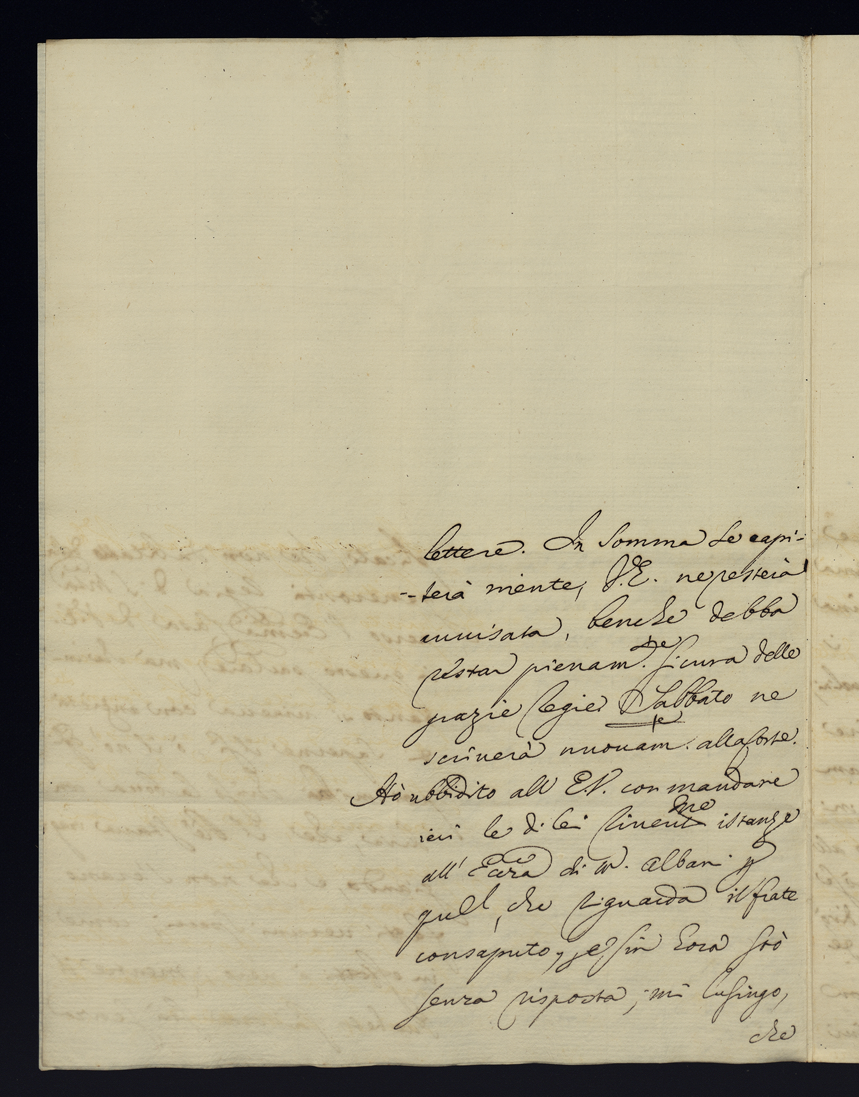 lettere. In somma se capi-
-terà niente, V.E. ne resterà
auuisata, benche debba
restar pienam.te sicura delle
grazie Regie. Sabbato ne
scriuerà nuouam.te alla Corte.
Hò ubbidito all' E.V. con mandare
ieri le di lei riuerit.me istanze
all' Ecc.za di M. Albani p
quel, che riguarda il frate
consaputo, e sin hora stò
senza risposta; mi lusingo,
che